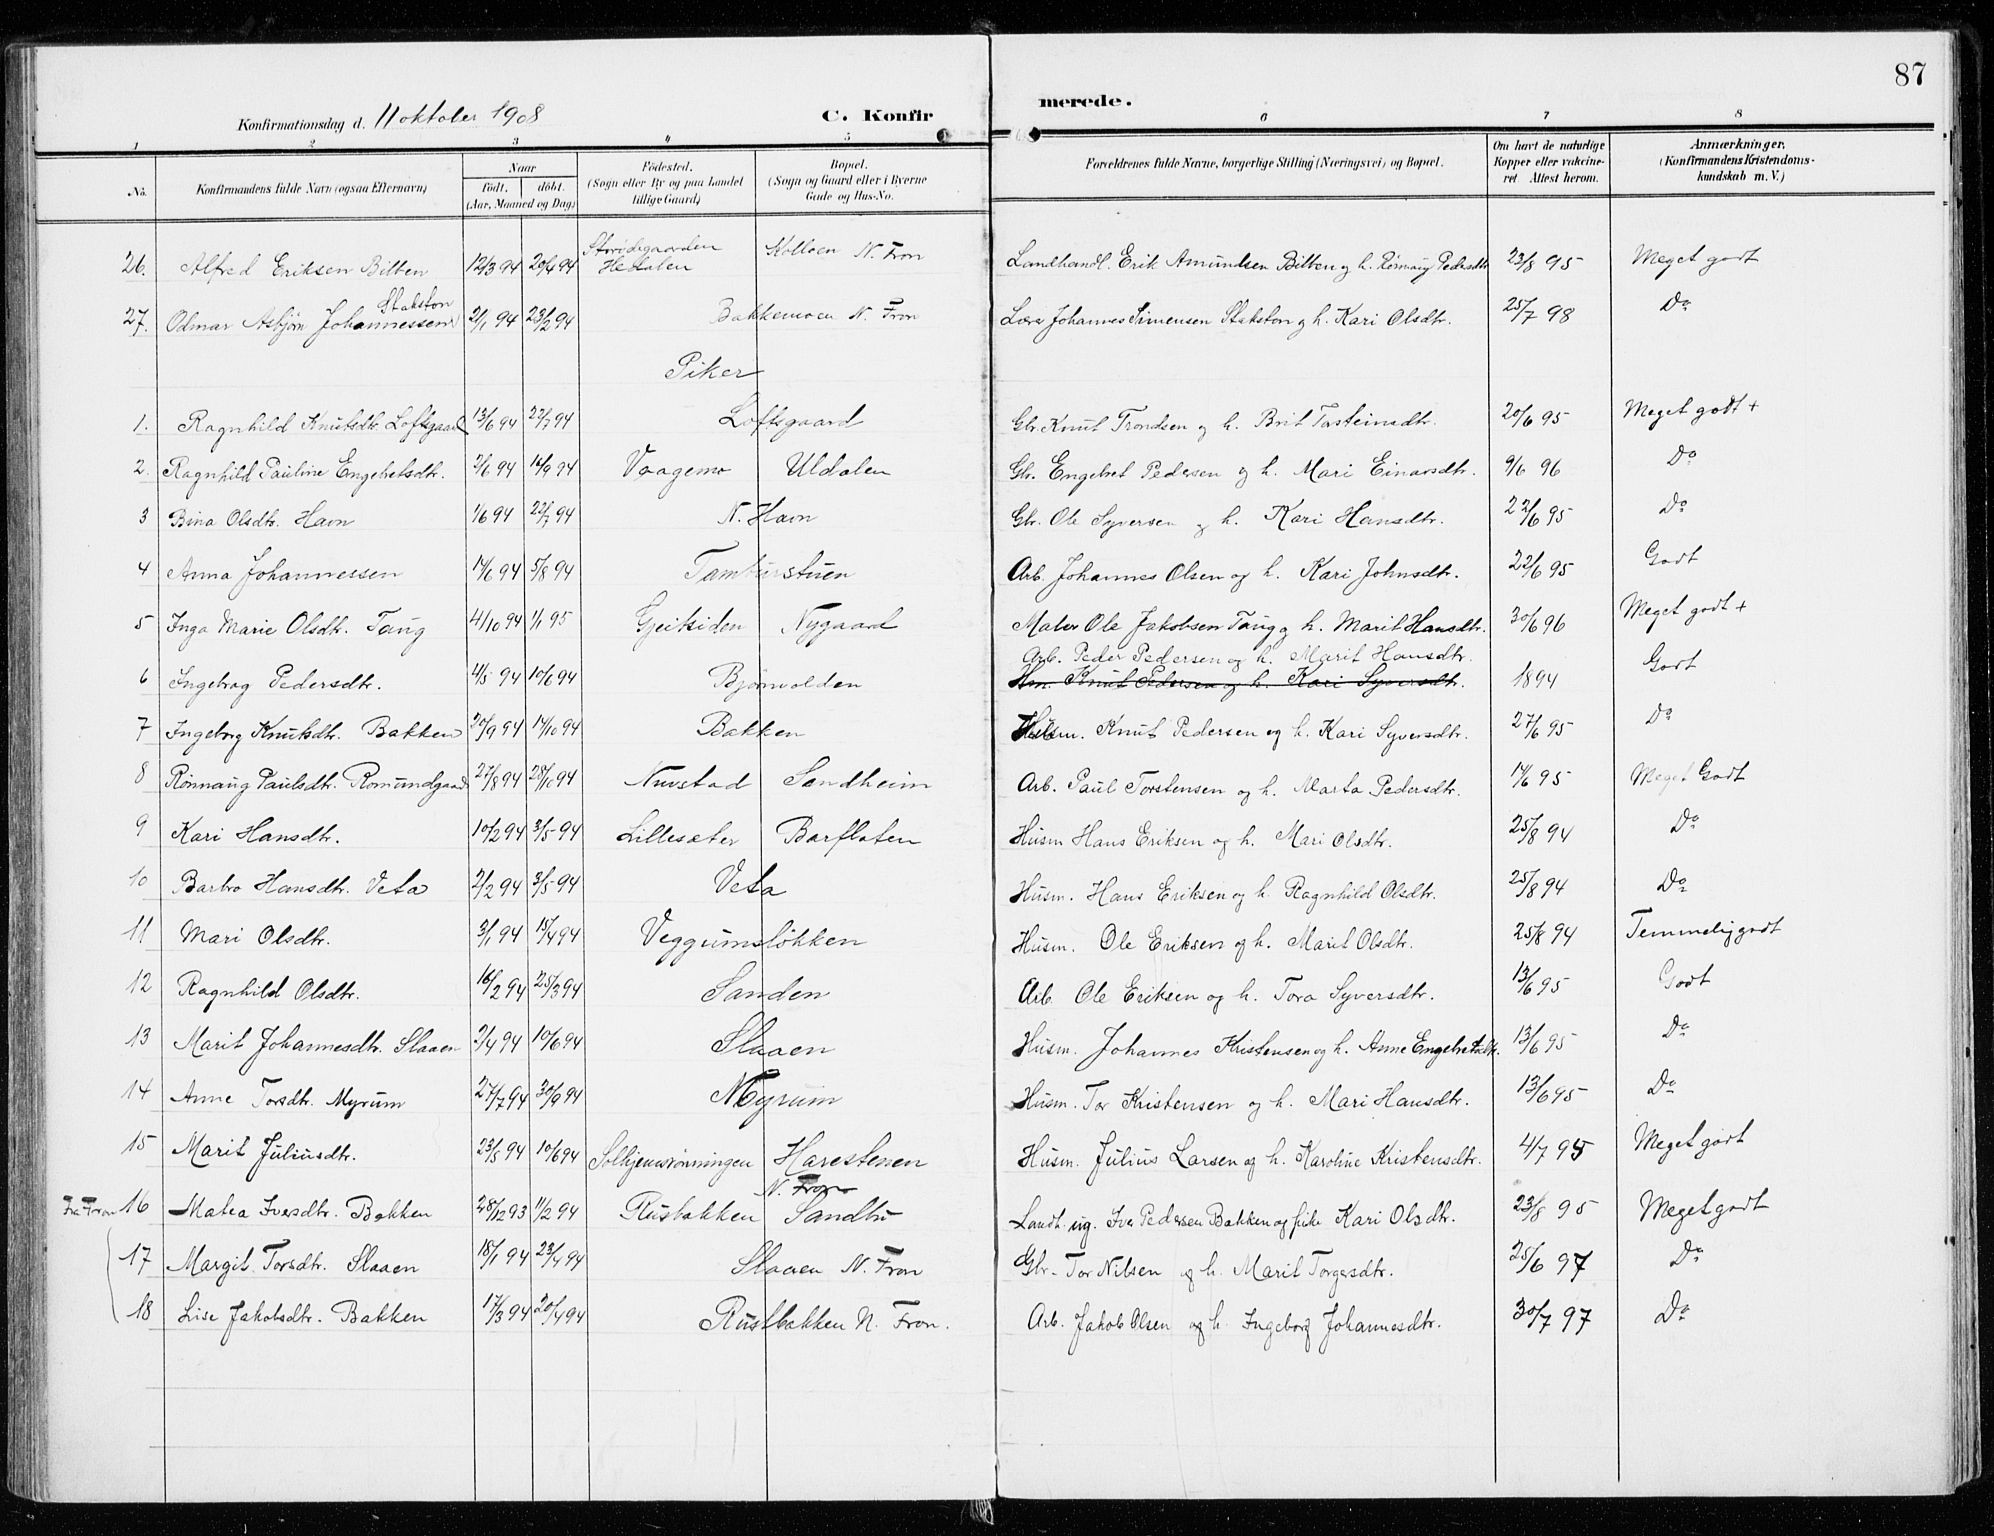 87
Konfirmationsdag d. 11 oktober 1908
C. Konfirmerede.
1 2 3 4 5 6 7 8
No.
Konfirmandens fulde Navn (ogsaa Efternavn)
Naar
født. døbt.
(Aar, Maaned og Dag)
Fødested.
(Sogn eller By og paa Landet
tillige Gaard)
Bopæl.
(Sogn og Gaard eller i Byerne
Gade og Hus-No.
Forældrenes fulde Navne, borgerlige Stilling (Næringsvei) og Bopæl.
Om havt de naturlige
Kopper eller vakcine-
ret. Attest herom.
Anmærkninger,
(Konfirmandens Kristendoms-
kundskab m. V.)
26. Alfred Eriksen Bilben 12/3 94 20/4 94 Hetalen Kolloen N. Fron Landhandl. Erik Amundsen Bilben og h. Rønnaug Pedersdtr 23/8 95 Meget godt
27. Odmar Asbjørn Johannessen Stakston 2/1 94 23/2 94 Bakkemoen N. Fron Lærer Johannes Simensen Stakston og h. Kari Olsdtr. 25/7 98 Do
Piker
1. Ragnhild Knutsdtr. Loftsgaard 13/6 94 22/7 94 Loftsgaard Gbr. Knut Trondsen og h. Brit Torsteinsdtr. 20/6 95 Meget godt +
2. Ragnhild Pauline Engebretsdtr. 2/6 94 16/9 94 Vaagemo Uldalen Gbr. Engebret Pedersen og h. Mari Einarsdtr. 9/6 96 Do
3 Bina Olsdtr. Havn 1/6 94 22/7 94 N. Havn Gbr. Ole Syversen og h. Kari Hansdtr. 22/6 95 Do
4 Anna Johannessen 14/6 94 5/8 94 Tamburstuen Arb. Johannes Olsen og h. Kari Johnsdtr. 22/6 95 Godt
5 Inga Marie Olsdtr. Taug 4/10 94 1/1 95 Geitsiden Nygaard Maler Ole Jakobsen Taug og h. Marit Hansdtr. 30/6 96 Meget godt +
Arb. Peder Pedersen og h. Marit Hansdtr.
6 Ingebrog Pedersdtr. 4/5 94 10/6 94 Bjørnvolden Hm. Knut Pedersen og h. Kari Syversdtr. 1894 Godt
7 Ingeborg Knutsdtr. Bakken 20/9 94 14/10 94 Bakken Husm. Knut Pedersen og h. Kari Syversdtr. 27/6 95 Do
8 Rønnaug Paulsdtr. Romundgaard 27/8 94 28/10 94 Nurstad Sandheim Arb. Paul Torstensen og h. Marta Pedersdtr. 14/6 95 Meget Godt
9 Kari Hansdtr. 10/2 94 3/5 94 Lillesæter Barflaten Husm Hans Eriksen og h. Mari Olsdtr. 25/8 94 Do
10 Barbro Hansdtr. Veta 2/2 94 3/5 94 Veta Husm. Hans Eriksen og h. Ragnhild Olsdtr. 25/8 94 Do
11 Mari Olsdtr. 3/1 94 15/4 94 Veggumsløkken Husm. Ole Eriksen og h. Marit Olsdtr. 25/8 94 Temmelig godt
12 Ragnhild Olsdtr. 16/2 94 25/3 94 Sanden Arb. Ole Eriksen og h. Tora Syversdtr. 13/6 95 Godt
13 Marit Johannesdtr. Slaaen 2/4 94 10/6 94 Slaaen Husm. Johannes Kristensen og h. Anne Engebretsdtr. 13/6 95 Do
14 Anne Torsdtr. Myrum 27/7 94 30/9 94 Myrum Husm. Tor Kristensen og h. Mari Hansdtr. 13/6 95 Do
15 Marit Juliusdtr. 23/5 94 10/6 94 Solhjemsrønningen Harestenen Husm. Julius Larsen og h. Karoline Kristensdtr. 4/7 95 Meget godt
N. Fron
Fra Fron 16 Matea Iversdtr. Bakken 28/12 93 11/2 94 Rusbakken Sandbu Landt. ug. Iver Pedersen Bakken og pike Kari Olsdtr. 23/8 95 Meget godt
17 Margit Torsdtr. Slaaen 18/1 94 23/4 94 Slaaen N. Fron Gbr. Tor Nilsen og h. Marit Torgersdtr. 25/6 97 Do
18 Lise Jakobsdtr. Bakken 17/3 94 20/4 94 Rustbakken N. Fron. Arb. Jakob Olsen og h. Ingeborg Johannesdtr. 30/7 97 Do